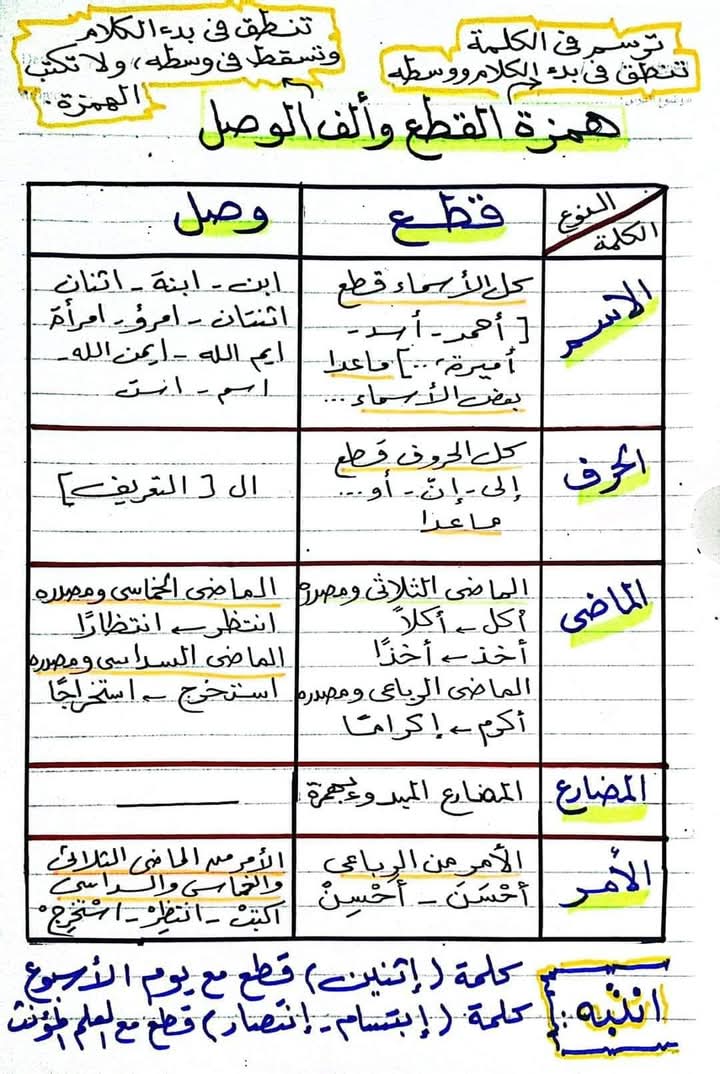 ترسم في الكلمة
تنطق في بدء الكلام ووسطه
تنطق في بدء الكلام
وتسقط في وسطه، ولا تكتب
الهمزة.
همزة القطع وألف الوصل
النوع
الكلمة
قطع
وصل
الاسم
كل الأسماء قطع
[أحمد - أسد -
أميرة،...] ماعدا
بعض الأسماء ...
ابن - ابنة - اثنان
اثنتان - امرؤ - امرأة
ايم الله - ايمن الله -
اسم - است
الحرف
كل الحروف قطع
إلى - إنّ - أو...
ماعدا
ال [التعريف]
الماضى
الماضى الثلاثى ومصدره
أكل ← أكلاً
أخذ ← أخذًا
الماضى الرباعى ومصدره
أكرم ← إكرامًا
الماضى الخماسى ومصدره
انتظر ← انتظارًا
الماضى السداسى ومصدره
استخرج ← استخراجًا
المضارع
المضارع المبدوء بهمزة
الأمر
الأمر من الرباعى
أحْسَنَ - أَحْسِنْ
الأمر من الماضى الثلاثى
والخماسى والسداسى
اكتبْ - انتظِرْ - اسْتخرِجْ
انتبه:
كلمة (إثنين) قطع مع يوم الأسبوع
كلمة (إبتسام - إنتصار) قطع مع العلم المؤنث